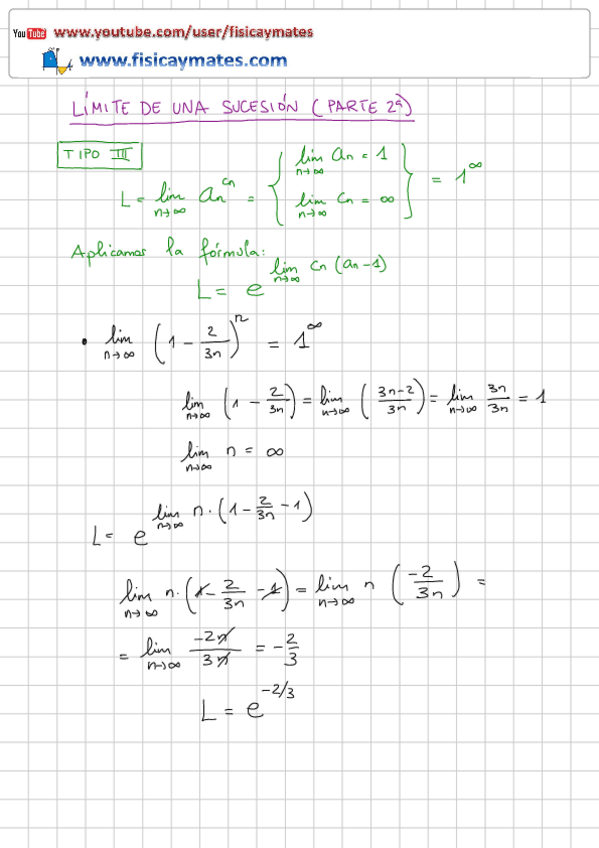 You Tube www.youtube.com/user/fisicaymates
www.fisicaymates.com
LÍMITE DE UNA SUCESIÓN (PARTE 2ª)
TIPO III
L = lim n→∞ an^cn = { lim n→∞ an = 1 lim n→∞ cn = ∞ } = 1^∞
Aplicamos la fórmula:
L = e^(lim n→∞ cn (an - 1))
• lim n→∞ (1 - 2/3n)^n = 1^∞
lim n→∞ (1 - 2/3n) = lim n→∞ (3n-2/3n) = lim n→∞ 3n/3n = 1
lim n→∞ n = ∞
L = e^(lim n→∞ n · (1 - 2/3n - 1))
lim n→∞ n · (1 - 2/3n - 1) = lim n→∞ n (-2/3n) =
= lim n→∞ -2n/3n = -2/3
L = e^-2/3